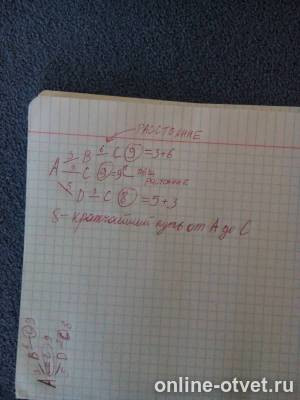 РАССТОЯНИЕ
A 3 B 6 C 9 = 3+6
C 9 = 9
расстояние
5 D 3 C 8 = 5+3
8 - кратчайший путь от A до C
online-otvet.ru